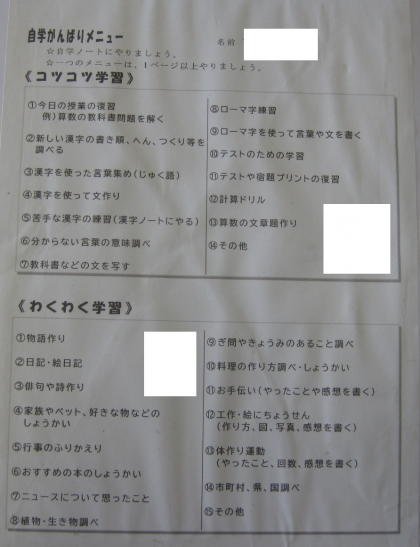 自学がんばりメニュー
名前
☆自学ノートにやりましょう。
☆一つのメニューは、1ページ以上やりましょう。
《コツコツ学習》
①今日の授業の復習
例)算数の教科書問題を解く
②新しい漢字の書き順、へん、つくり等を
調べる
③漢字を使った言葉集め(じゅく語)
④漢字を使って文作り
⑤苦手な漢字の練習(漢字ノートにやる)
⑥分からない言葉の意味調べ
⑦教科書などの文を写す
⑧ローマ字練習
⑨ローマ字を使って言葉や文を書く
⑩テストのための学習
⑪テストや宿題プリントの復習
⑫計算ドリル
⑬算数の文章題作り
⑭その他
《わくわく学習》
①物語作り
②日記・絵日記
③俳句や詩作り
④家族やペット、好きな物などの
しょうかい
⑤行事のふりかえり
⑥おすすめの本のしょうかい
⑦ニュースについて思ったこと
⑧植物・生き物調べ
⑨ぎ問やきょうみのあること調べ
⑩料理の作り方調べ・しょうかい
⑪お手伝い(やったことや感想を書く)
⑫工作・絵にちょうせん
(作り方、図、写真、感想を書く)
⑬体作り運動
(やったこと、回数、感想を書く)
⑭市町村、県、国調べ
⑮その他